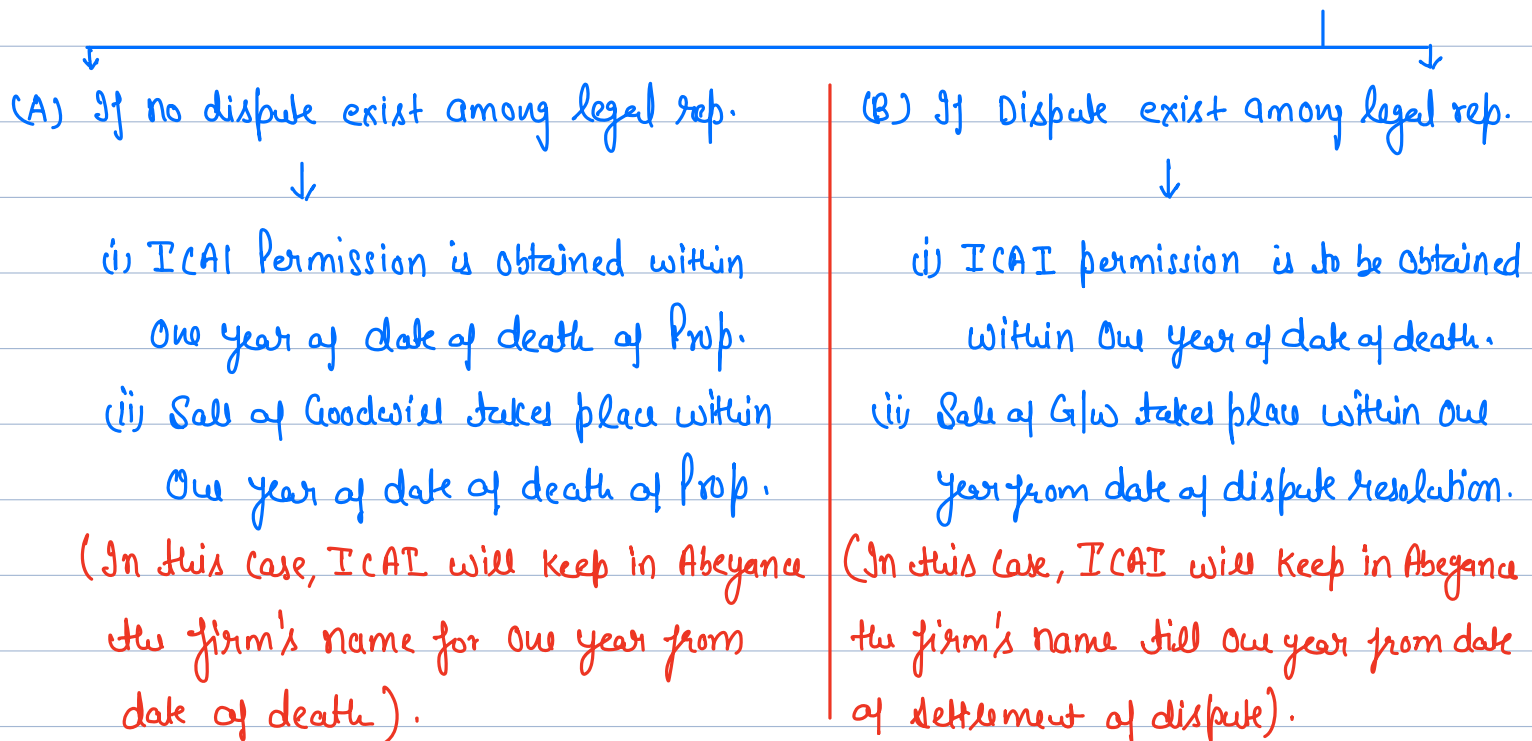 (A) If no dispute exist among legal rep.
(i) ICAI Permission is obtained within
one year of date of death of Prop.
(ii) Sale of Goodwill takes place within
One year of date of death of Prop.
(In this case, ICAI will keep in Abeyance
the firm's name for one year from
date of death).
(B) If Dispute exist among legal rep.
(i) ICAI permission is to be obtained
within one year of date of death.
(ii) Sale of G/w takes place within one
year from date of dispute resolution.
(In this case, ICAI will keep in Abeyance
the firm's name till one year from date
of settlement of dispute).